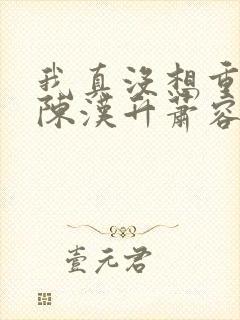 我真没想重
陈汉升萧容
壹元君